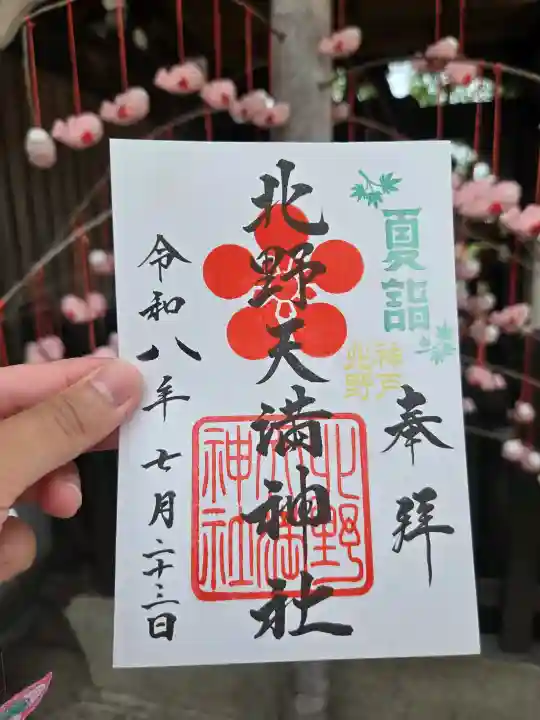 夏詣
神戸
北野
奉拝
北野天満神社
北野
天満
神社
令和八年七月二十三日